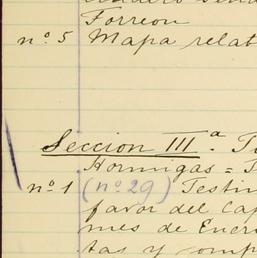 Torreon
nº 5 Mapa relat
Seccion IIIª. Ti
Hormigas = T
nº 1 (nº 29) Testim
favor del Cap
mes de Ener
tas y comp